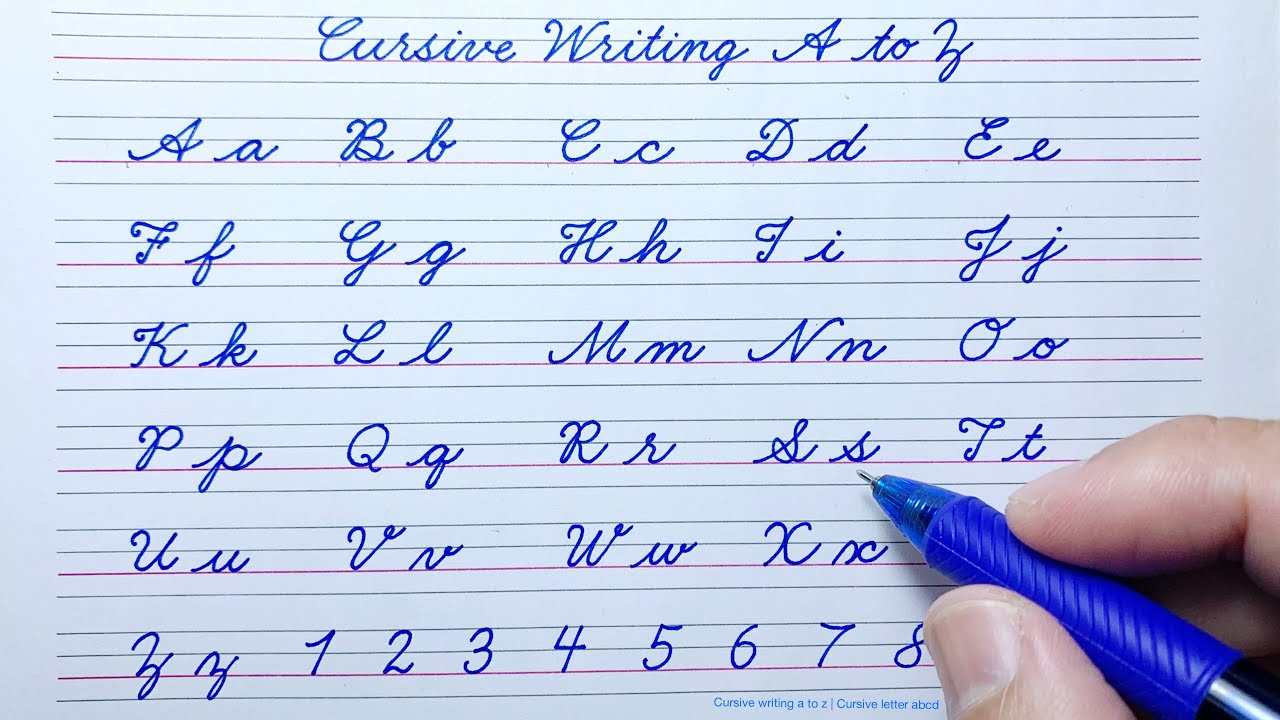 Cursive Writing A to Z
A a B b C c D d E e
F f G g H h I i J j
K k L l M m N n O o
P p Q q R r S s T t
U u V v W w X x
Z z 1 2 3 4 5 6 7 8
Cursive writing a to z | Cursive letter abcd